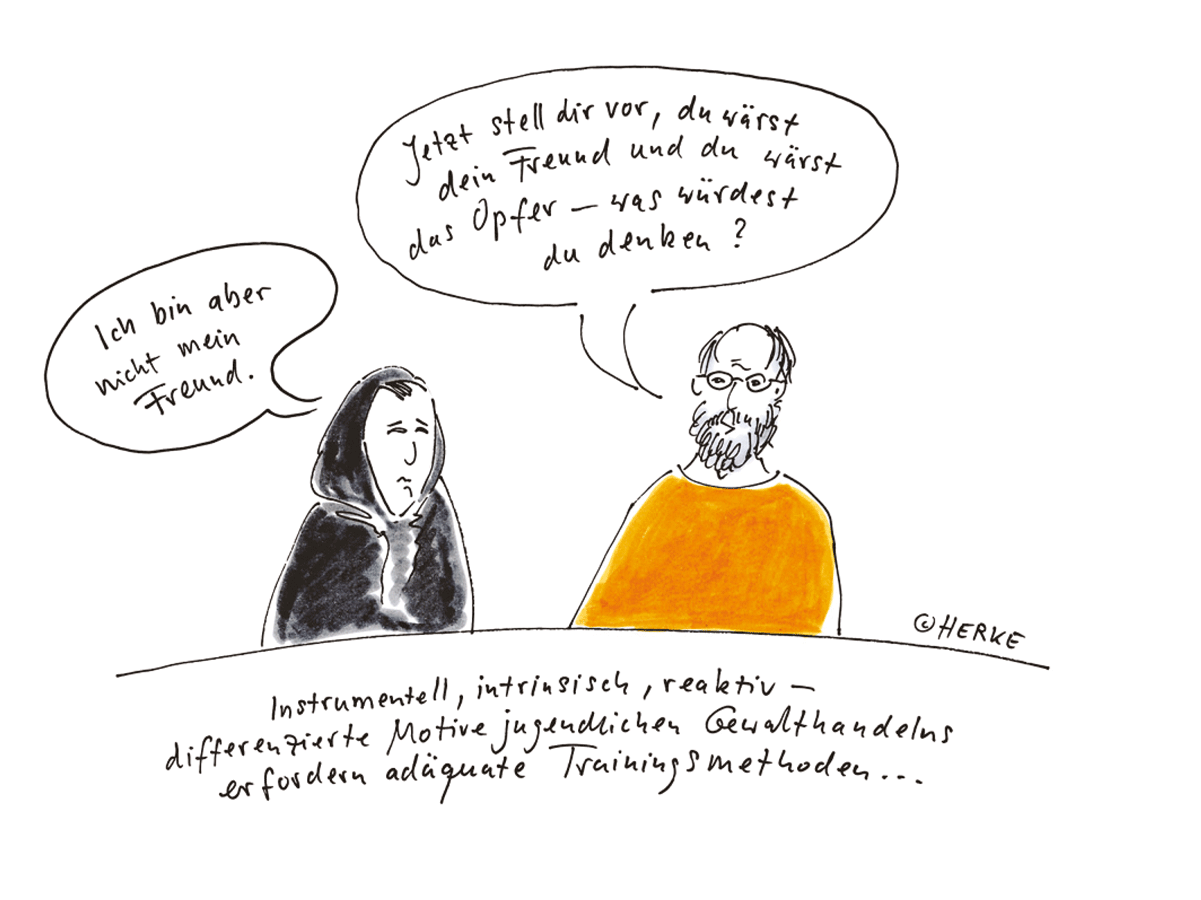 Jetzt stell dir vor, du wärst
dein Freund und du wärst
das Opfer – was würdest
du denken?
Ich bin aber
nicht mein
Freund.
© HERKE
Instrumentell, intrinsisch, reaktiv –
differenzierte Motive jugendlichen Gewalthandelns
erfordern adäquate Trainingsmethoden...